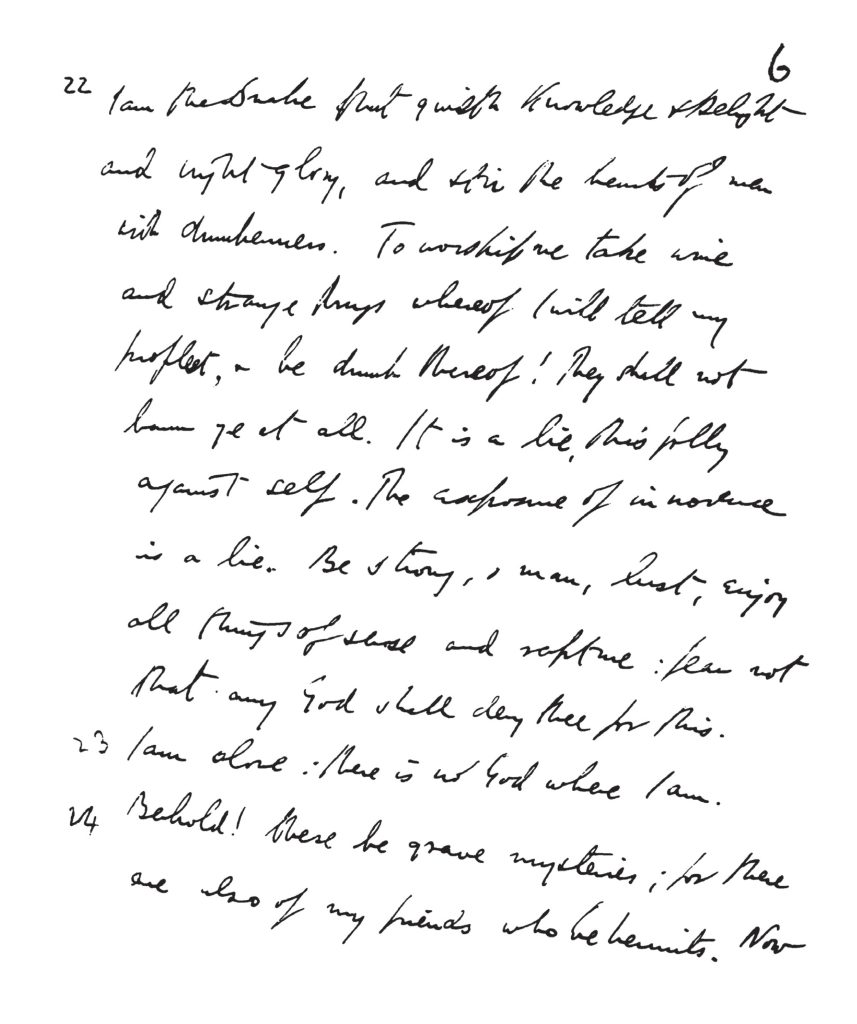 6
22 I am the Snake that giveth Knowledge & Delight
and bright glory, and stir the hearts of men
with drunkenness. To worship me take wine
and strange drugs whereof I will tell my
prophet, & be drunk thereof! They shall not
harm ye at all. It is a lie, this folly
against self. The exposure of innocence
is a lie. Be strong, o man, lust, enjoy
all things of sense and rapture : fear not
that any God shall deny thee for this.
23 I am alone : there is no God where I am.
24 Behold! these be grave mysteries ; for there
are also of my friends who be hermits. Now